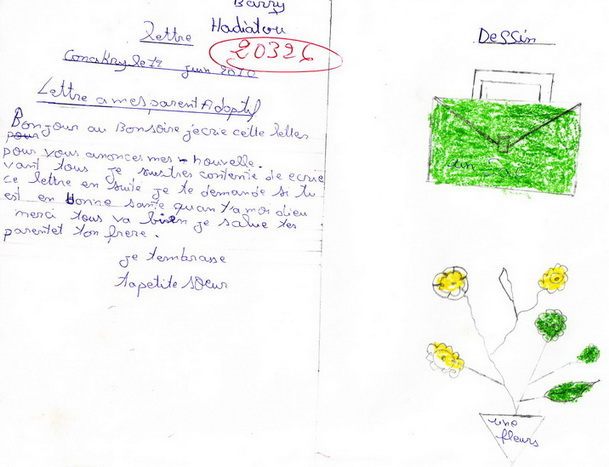 Barry
Hadiatou
Lettre
20326
Conakry le 12 juin 2010
Lettre a mes parent Adoptif
Bonjour au Bonsoire j ecrie cette lettes
pour
pour vous anonces mes nouvelle.
vant tous je suis tres contente de ecrie
ce lettre en suite je te demande si tu
est en bonne sante quan ta moi dieu
merci tous va bien je salue tes
parent et ton frere.
je t'embrasse
ta petite sœur
Dessin
un sac
une
fleurs